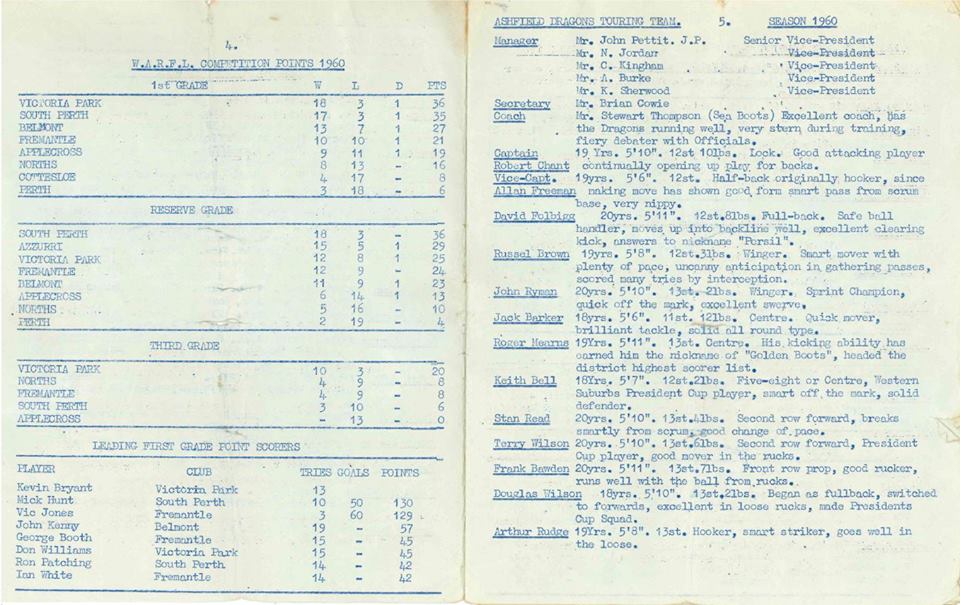 4.
W.A.R.F.L. COMPETITION POINTS 1960
1st GRADE W L D PTS
VICTORIA PARK 18 3 1 36
SOUTH PERTH 17 3 1 35
BELMONT 13 7 1 27
FREMANTLE 10 10 1 21
APPLECROSS 9 11 1 19
NORTHS 8 13 - 16
COTTESLOE 4 17 - 8
PERTH 3 18 - 6
RESERVE GRADE
SOUTH PERTH 18 3 - 36
AZZURRI 15 5 1 29
VICTORIA PARK 12 8 1 25
FREMANTLE 12 9 - 24
BELMONT 11 9 1 23
APPLECROSS 6 14 1 13
NORTHS 5 16 - 10
PERTH 2 19 - 4
THIRD GRADE
VICTORIA PARK 10 3 - 20
NORTHS 4 9 - 8
FREMANTLE 4 9 - 8
SOUTH PERTH 3 10 - 6
APPLECROSS - 13 - 0
LEADING FIRST GRADE POINT SCORERS
PLAYER CLUB TRIES GOALS POINTS
Kevin Bryant Victoria Park 13
Mick Hunt South Perth 10 50 130
Vic Jones Fremantle 3 60 129
John Kenny Belmont 19 - 57
George Booth Fremantle 15 - 45
Don Williams Victoria Park 15 - 45
Ron Patching South Perth 14 - 42
Ian White Fremantle 14 - 42
ASHFIELD DRAGONS TOURING TEAM. 5. SEASON 1960
Manager Mr. John Pettit. J.P. Senior Vice-President
Mr. N. Jordan Vice-President
Mr. C. Kingham Vice-President
Mr. A. Burke Vice-President
Mr. K. Sherwood Vice-President
Secretary Mr. Brian Cowie
Coach Mr. Stewart Thompson (Sea Boots) Excellent coach, has
the Dragons running well, very stern during training,
fiery debater with Officials.
Captain 19 Yrs. 5'10". 12st 10lbs. Lock. Good attacking player
Robert Chant continually opening up play for backs.
Vice-Capt. 19yrs. 5'6". 12st. Half-back originally hooker, since
Allan Freeman making move has shown good form smart pass from scrum
base, very nippy.
David Folbigg 20yrs. 5'11". 12st.8lbs. Full-back. Safe ball
handler, moves up into backline well, excellent clearing
kick, answers to nickname "Persil".
Russel Brown 19yrs. 5'8". 12st.3lbs. Winger. Smart mover with
plenty of pace, uncanny anticipation in gathering passes,
scored many tries by interception.
John Ryman 20yrs. 5'10". 13st. 2lbs. Winger. Sprint Champion,
quick off the mark, excellent swerve.
Jack Barker 18yrs. 5'6". 11st. 12lbs. Centre. Quick mover,
brilliant tackle, solid all round type.
Roger Hearns 19Yrs. 5'11". 13st. Centre. His kicking ability has
earned him the nickname of "Golden Boots", headed the
district highest scorer list.
Keith Bell 18Yrs. 5'7". 12st.2lbs. Five-eight or Centre, Western
Suburbs President Cup player, smart off the mark, solid
defender.
Stan Read 20yrs. 5'10". 13st.4lbs. Second row forward, breaks
smartly from scrum, good change of pace.
Terry Wilson 20yrs. 5'10". 13st.6lbs. Second row forward, President
Cup player, good mover in the rucks.
Frank Bawden 20yrs. 5'11". 13st.7lbs. Front row prop, good rucker,
runs well with the ball from rucks.
Douglas Wilson 18yrs. 5'10". 13st.2lbs. Began as fullback, switched
to forwards, excellent in loose rucks, made Presidents
Cup Squad.
Arthur Rudge 19Yrs. 5'8". 13st. Hooker, smart striker, goes well in
the loose.